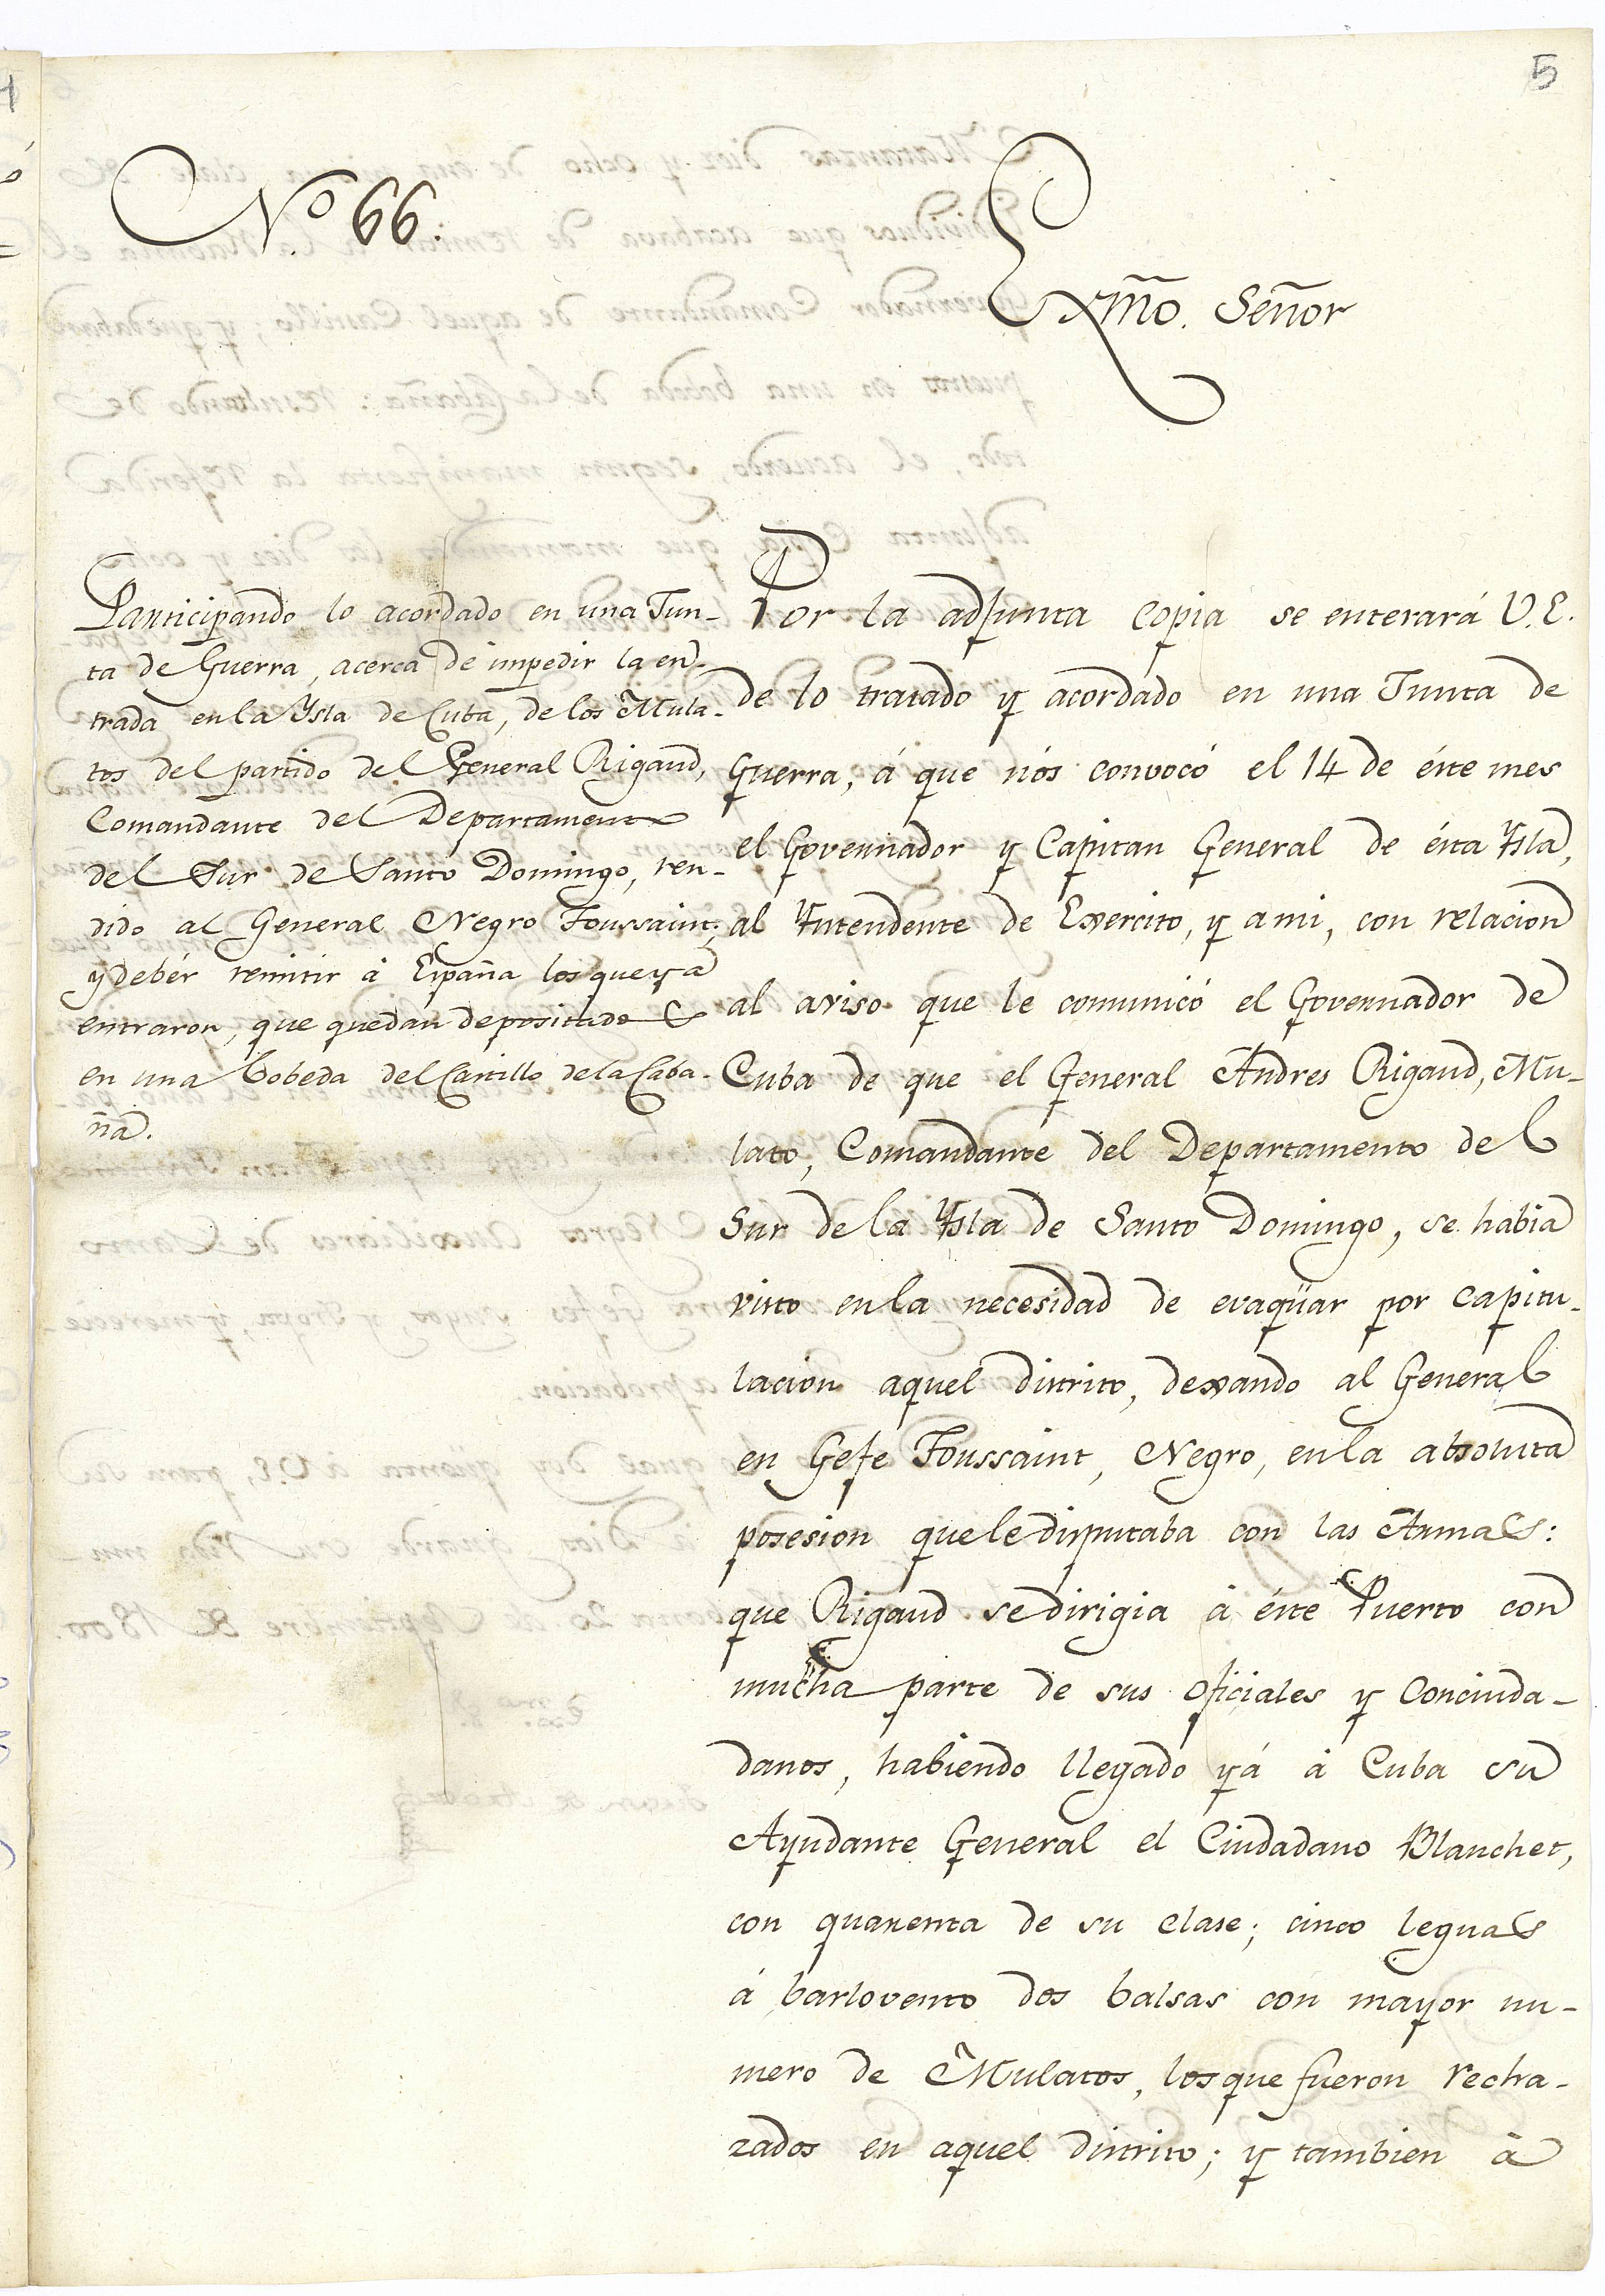 5
Nº 66.
Exmõ. Señor
Participando lo acordado en una Jun-
ta de Guerra, acerca de impedir la en-
trada en la Ysla de Cuba, de los Mula-
tos del partido del General Rigaud,
Comandante del Departamento
del Sur de Santo Domingo, ren-
dido al General Negro Toussaint;
y debér remitir à España los que ya
entraron, que quedan depositados
en una bobeda del Castillo de la Caba-
ña.
Por la adjunta copia se enterará V.E.
de lo tratado y acordado en una Junta de
Guerra, á que nós convocó el 14 de éste mes
el Governador y Capitan General de ésta Ysla,
al Yntendente de Exercito, y a mi, con relacion
al aviso que le comunicó el Governador de
Cuba de que el General Andres Rigaud, Mu-
lato, Comandante del Departamento del
Sur de la Ysla de Santo Domingo, se habia
visto en la necesidad de evaqüar por capitu-
lacion aquel distrito, dexando al General
en Gefe Toussaint, Negro, en la absoluta
posesion que le disputaba con las Armas:
que Rigaud se dirigia à éste Puerto con
mucha parte de sus oficiales y Conciuda-
danos, habiendo llegado yá à Cuba su
Ayudante General el Ciudadano Blanchet,
con quarenta de su clase; cinco leguas
á barlovento dos balsas con mayor nu-
mero de Mulatos, los que fueron recha-
zados en aquel distrito; y tambien à